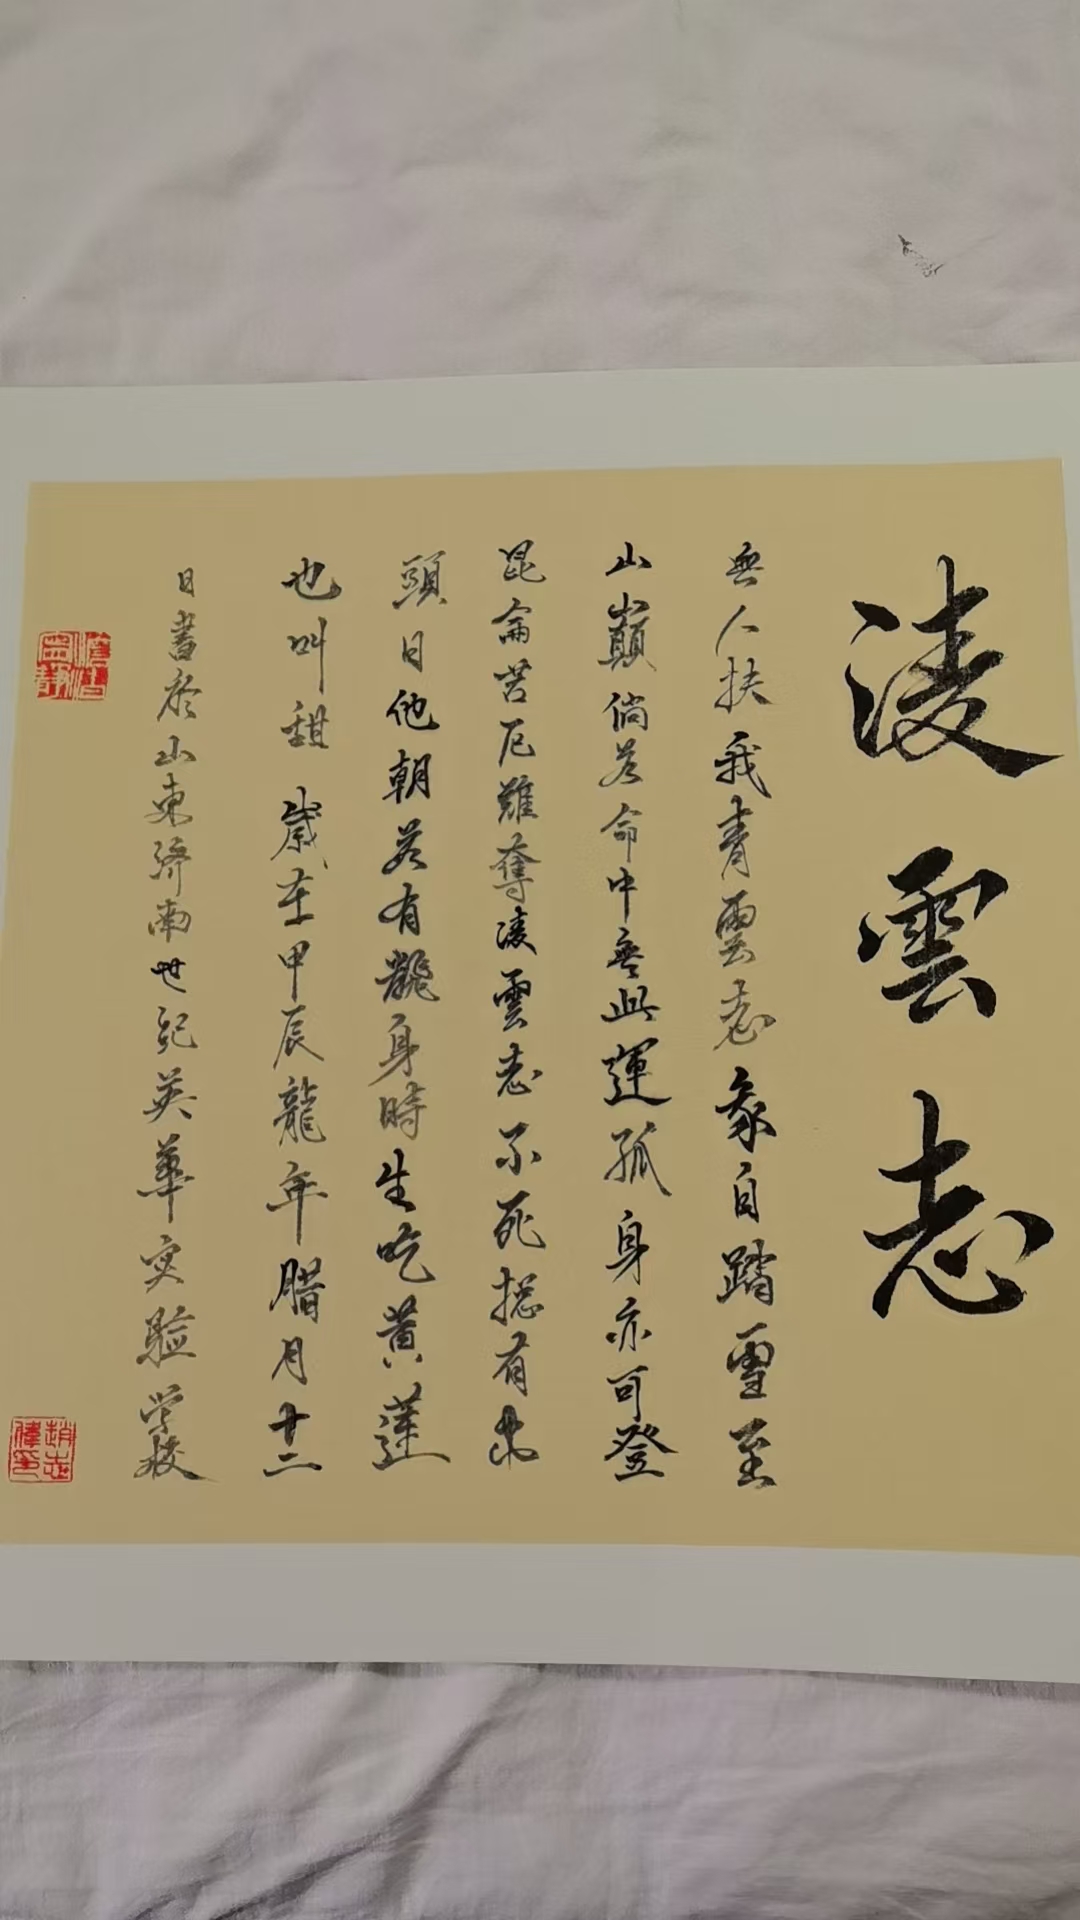 凌雲志
無人扶我青雲志我自踏雪至
山巔倘若命中無此運孤身亦可登
昆侖苦厄難奪凌雲志不死總有出
頭日他朝若有龍身時生吃黃蓮
也叫甜 歲在甲辰龍年腊月十二
日書於山東濟南世紀英華实驗学校
趙志偉印